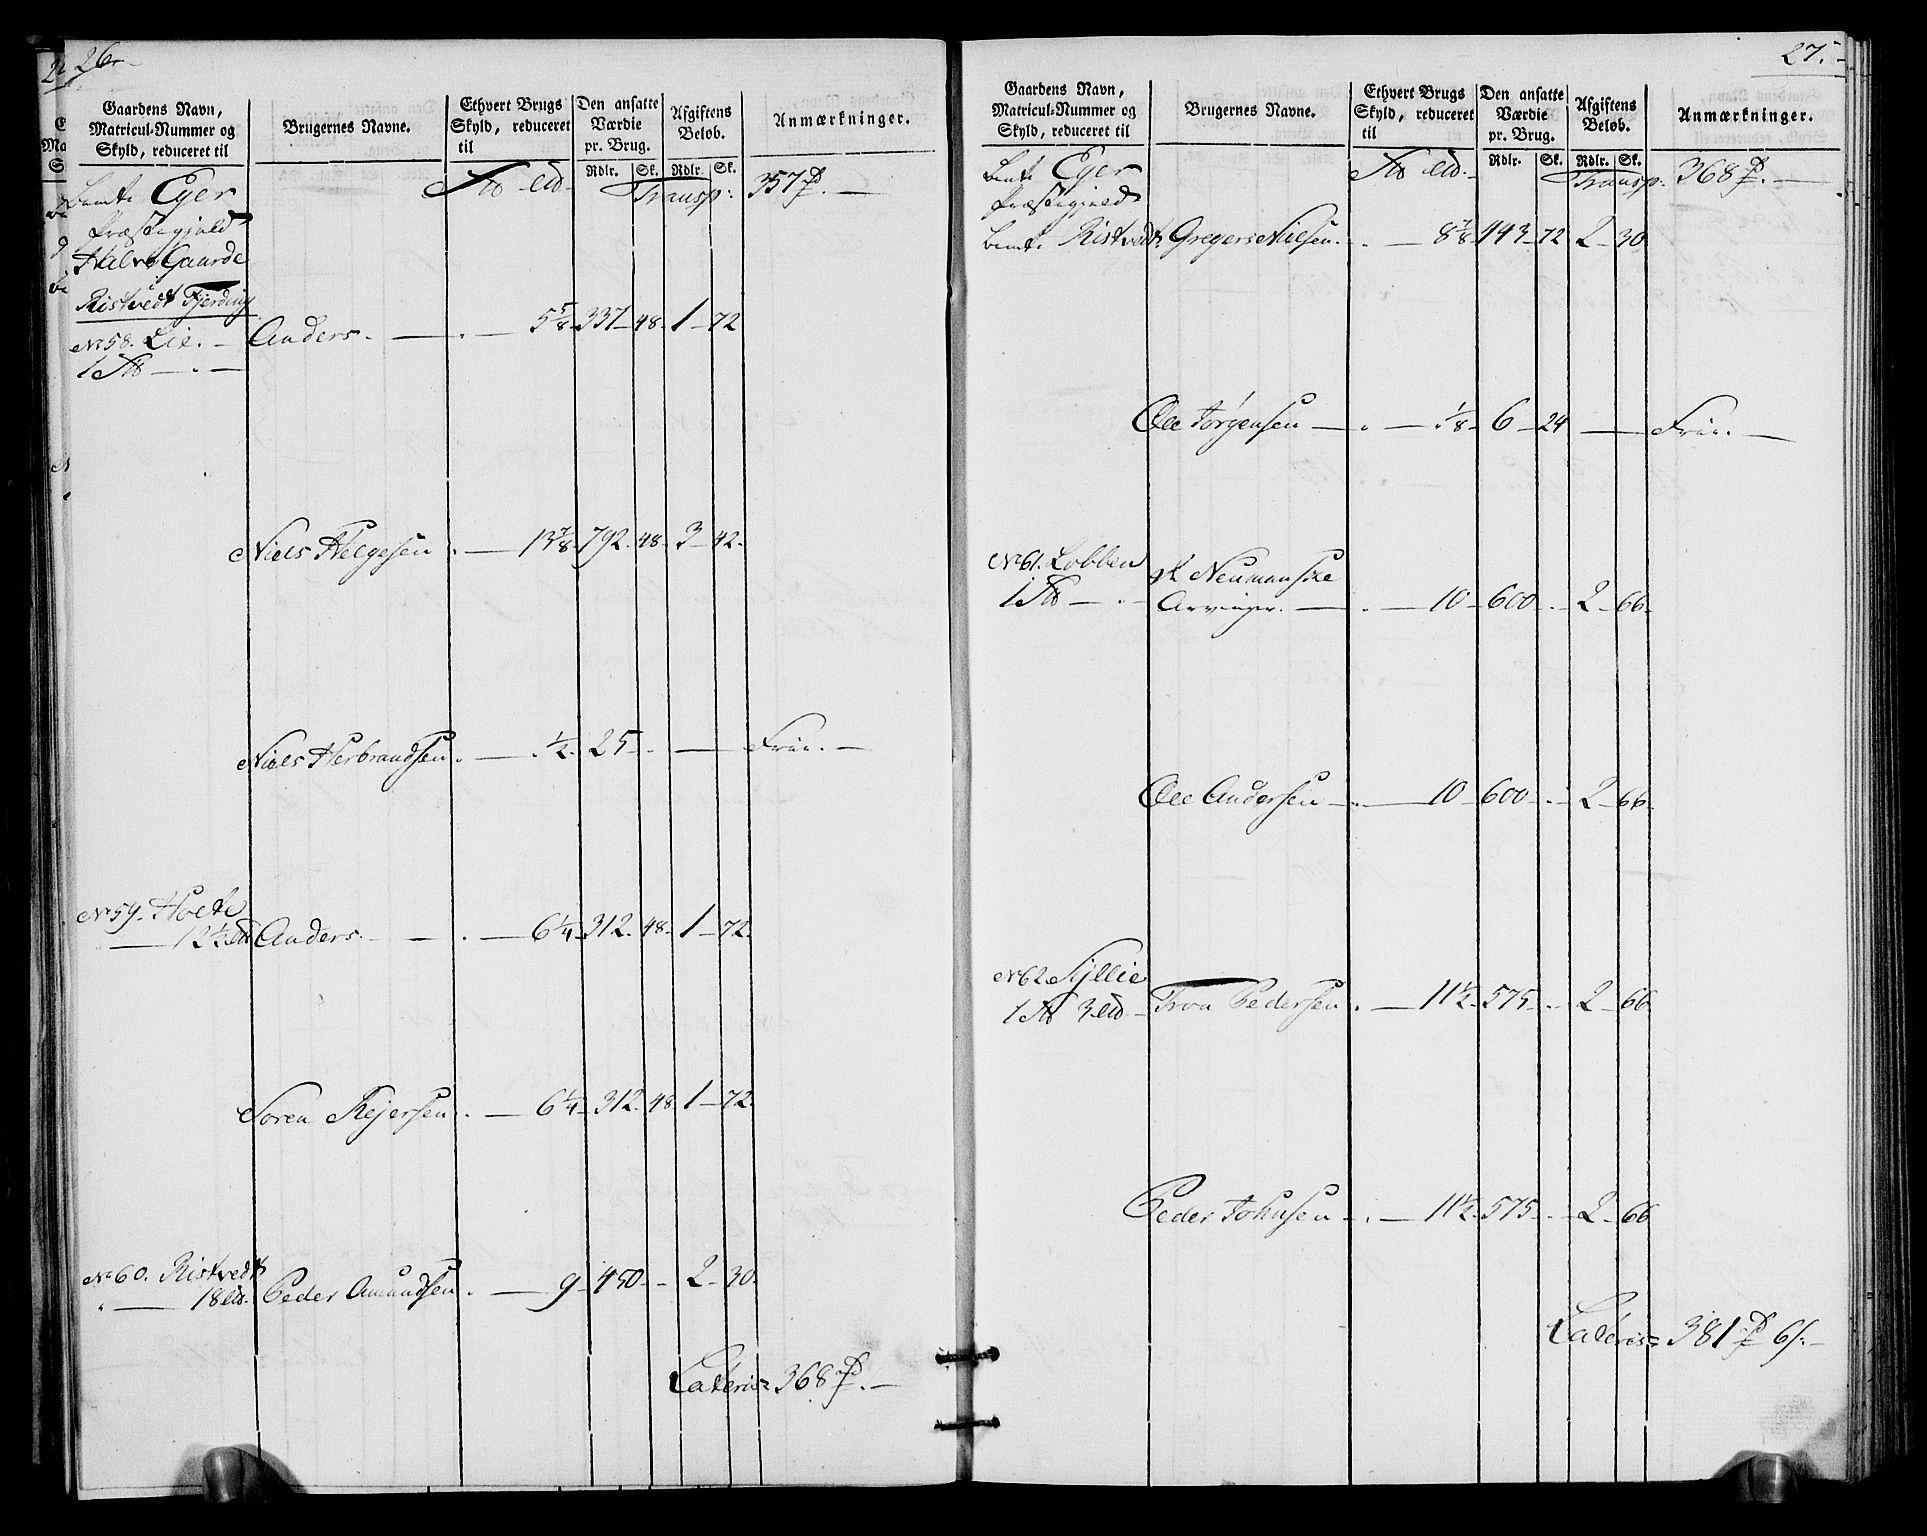 26.
Gaardens Navn, Matricul-Nummer og Skyld, reduceret til
Brugernes Navne.
Ethvert Brugs Skyld, reduceret til
Den ansatte Værdie pr. Brug.
Afgiftens Beløb.
Anmærkninger.
Rdlr. Sk. Rdlr. Sk.
Transp: 357
Eger
Præstegjeld
Halve Gaarde
Ristvedt Fjerding
No 58. Lie. Anders. 5 5/8 337 48 1 72
1
Niels Helgesen 13 7/8 792 48 3 42
Niels Herbrandsen 1/2 25 Frie.
No 59. Hoele
12 1/2 Anders 6 1/4 312 48 1 72
Søren Rejersen 6 1/4 312 48 1 72
No 60. Ristvedt
18 Peder Amundsen 9 450 2 30
Lateris 368
27.
Gaardens Navn, Matricul-Nummer og Skyld, reduceret til
Brugernes Navne.
Ethvert Brugs Skyld, reduceret til
Den ansatte Værdie pr. Brug.
Afgiftens Beløb.
Anmærkninger.
Rdlr. Sk. Rdlr. Sk.
Transp: 368
Eger
Præstegjeld
Ristvedt Gregers Nielsen 8 7/8 443 72 2 30
Ole Jørgensen 1/8 6 24 Frie.
No 61. Lobben Neumanske
1 Arvinger. 10 600 2 66
Ole Andersen 10 600 2 66
No 62
1 3 Tron Pedersen 11 1/2 575 2 66
Peder Johnsen 11 1/2 575 2 66
Lateris 381 6